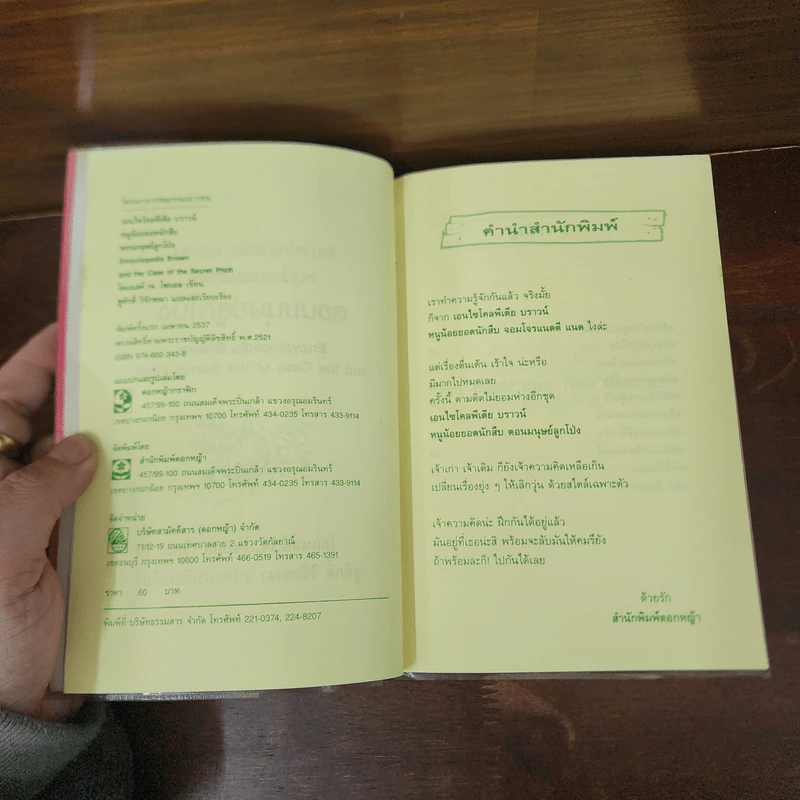 เอนไซโคลพีเดีย บราวน์
หนูน้อยยอดนักสืบ
ตอนมนุษย์ลูกโป่ง
Encyclopedia Brown
and the Case of the Secret Pitch
โดนัลด์ เจ. โซบอล เขียน
ชูศักดิ์ วิจักขณา แปลและเรียบเรียง
พิมพ์ครั้งแรก เมษายน 2537
สงวนสิทธิ์ตามพระราชบัญญัติลิขสิทธิ์ พ.ศ.2521
ISBN 974-602-343-8
แบบปกและรูปเล่มโดย
ดอกหญ้ากราฟิก
457/99-100 ถนนสมเด็จพระปิ่นเกล้า แขวงอรุณอมรินทร์
เขตบางกอกน้อย กรุงเทพฯ 10700 โทรศัพท์ 434-0235 โทรสาร 433-9114
จัดพิมพ์โดย
สำนักพิมพ์ดอกหญ้า
457/99-100 ถนนสมเด็จพระปิ่นเกล้า แขวงอรุณอมรินทร์
เขตบางกอกน้อย กรุงเทพฯ 10700 โทรศัพท์ 434-0235 โทรสาร 433-9114
จัดจำหน่าย
บริษัทสามัคคีสาร (ดอกหญ้า) จำกัด
71/12-19 ถนนเทศบาลสาย 2 แขวงวัดกัลยาณ์
เขตธนบุรี กรุงเทพฯ 10600 โทรศัพท์ 466-0519 โทรสาร 465-1391
ราคา 60 บาท
พิมพ์ที่ บริษัทธรรมสาร จำกัด โทรศัพท์ 221-0374, 224-8207
คำนำสำนักพิมพ์
เราทำความรู้จักกันแล้ว จริงมั้ย
ก็จาก เอนไซโคลพีเดีย บราวน์
หนูน้อยยอดนักสืบ จอมโจรแนตตี แนต ไงล่ะ
แต่เรื่องตื่นเต้น เร้าใจ น่ะหรือ
มีมากไปหมดเลย
ครั้งนี้ ตามติดไม่ยอมห่างอีกชุด
เอนไซโคลพีเดีย บราวน์
หนูน้อยยอดนักสืบ ตอนมนุษย์ลูกโป่ง
เจ้าเก่า เจ้าเดิม ก็ยังเจ้าความคิดเหลือเกิน
เปลี่ยนเรื่องยุ่ง ๆ ให้เลิกวุ่น ด้วยสไตล์เฉพาะตัว
เจ้าความคิดน่ะ ฝึกกันได้อยู่แล้ว
มันอยู่ที่เธอนะสิ พร้อมจะลับมันให้คมรึยัง
ถ้าพร้อมละก็! ไปกันได้เลย
ด้วยรัก
สำนักพิมพ์ดอกหญ้า